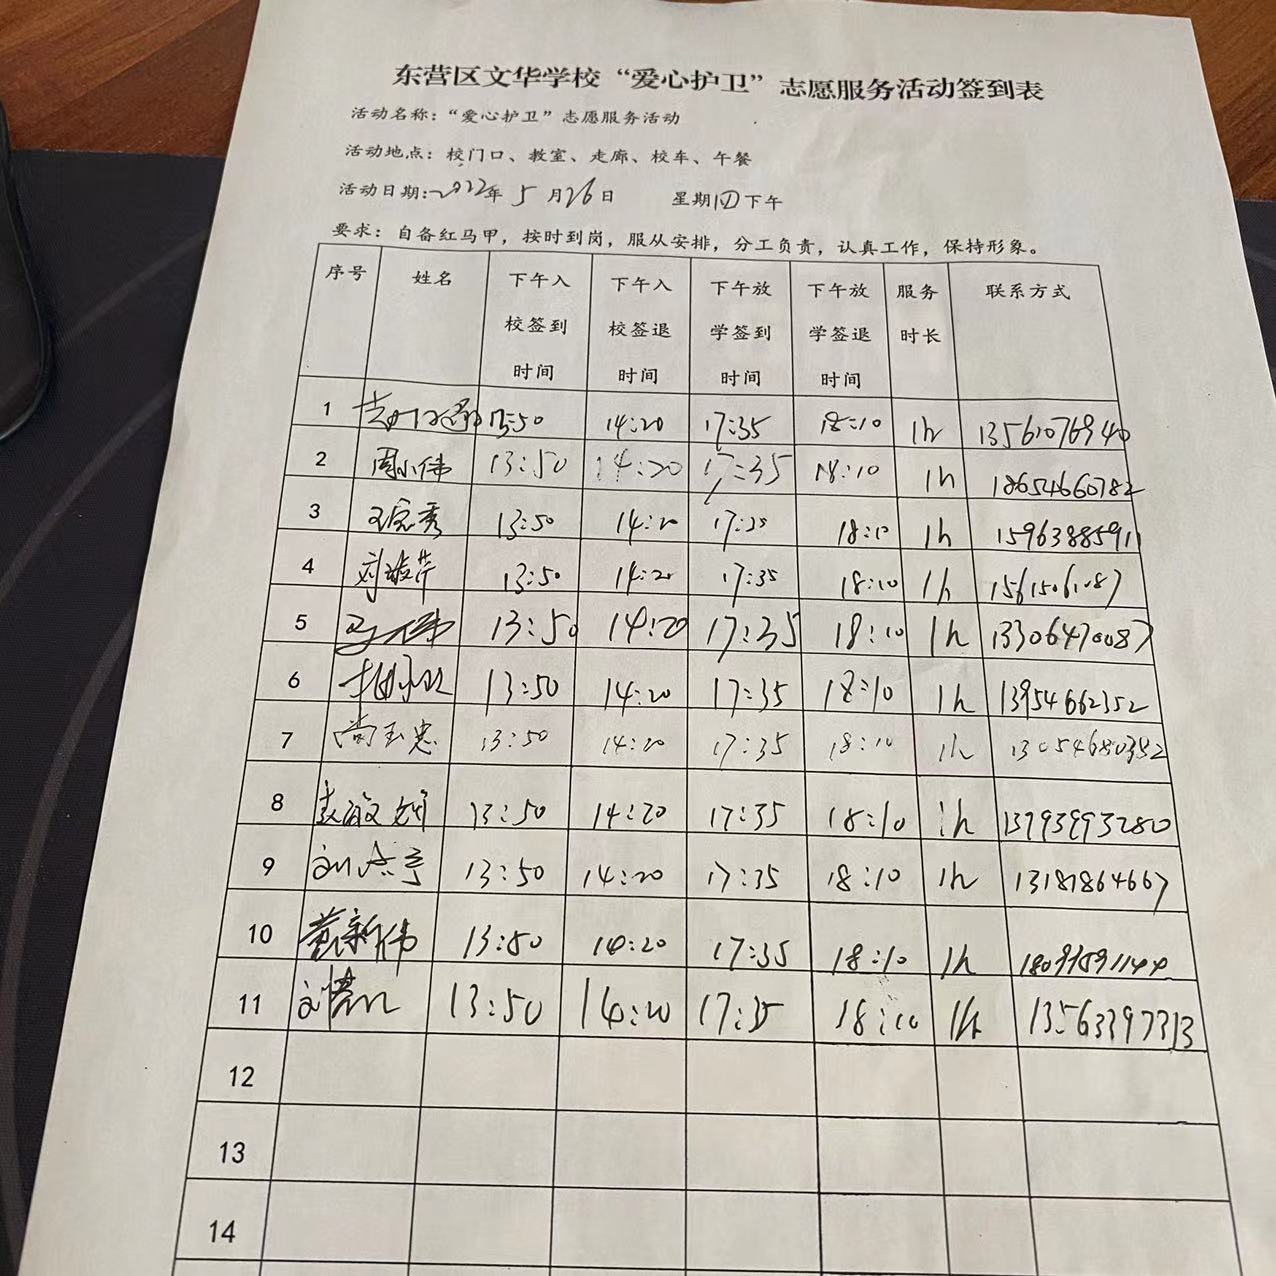 东营区文华学校“爱心护卫”志愿服务活动签到表
活动名称：“爱心护卫”志愿服务活动
活动地点：校门口、教室、走廊、校车、午餐
活动日期：2022年5月26日 星期四下午
要求：自备红马甲，按时到岗，服从安排，分工负责，认真工作，保持形象。
序号 姓名 下午入校签到时间 下午入校签退时间 下午放学签到时间 下午放学签退时间 服务时长 联系方式
1 13:50 14:20 17:35 18:10 1h 13561076940
2 周小伟 13:50 14:20 17:35 18:10 1h 18654660782
3 13:50 14:20 17:35 18:10 1h 15963885911
4 13:50 14:20 17:35 18:10 1h 15615061087
5 13:50 14:20 17:35 18:10 1h 13306470087
6 13:50 14:20 17:35 18:10 1h 13954662352
7 尚玉忠 13:50 14:20 17:35 18:10 1h 13054680382
8 13:50 14:20 17:35 18:10 1h 13793993280
9 13:50 14:20 17:35 18:10 1h 13181864667
10 黄新伟 13:50 14:20 17:35 18:10 1h
11 13:50 14:20 17:35 18:10 1h 13563397313
12
13
14